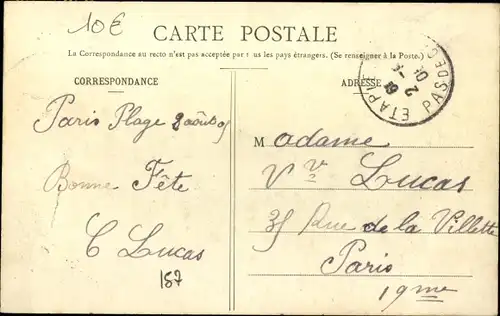 10€
CARTE POSTALE
La Correspondance au recto n'est pas acceptée par us les pays étrangers. (Se renseigner à la Poste.)
CORRESPONDANCE
ADRESSE
ETAPLES PAS DE C
Paris Plage 2 août 09
Bonne Fête
C Lucas
157
Madame
Vve Lucas
35 Rue de la Villette
Paris
19me